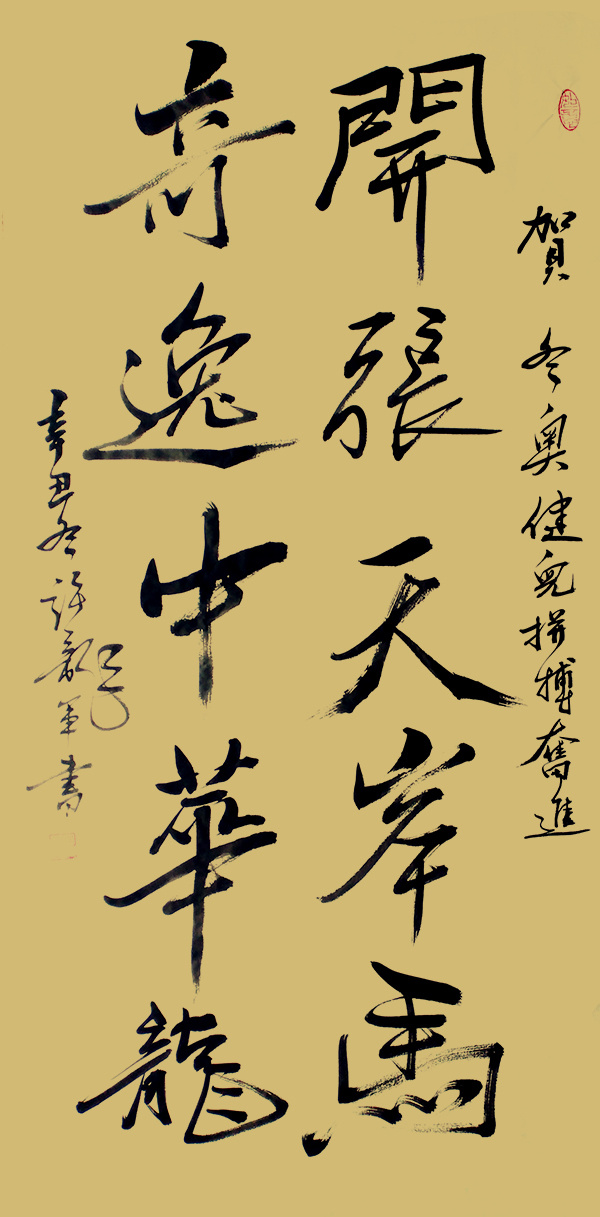 賀 冬奧健兒拼搏奮進
開張天岸馬
奇逸中華龍
辛丑冬 許 書